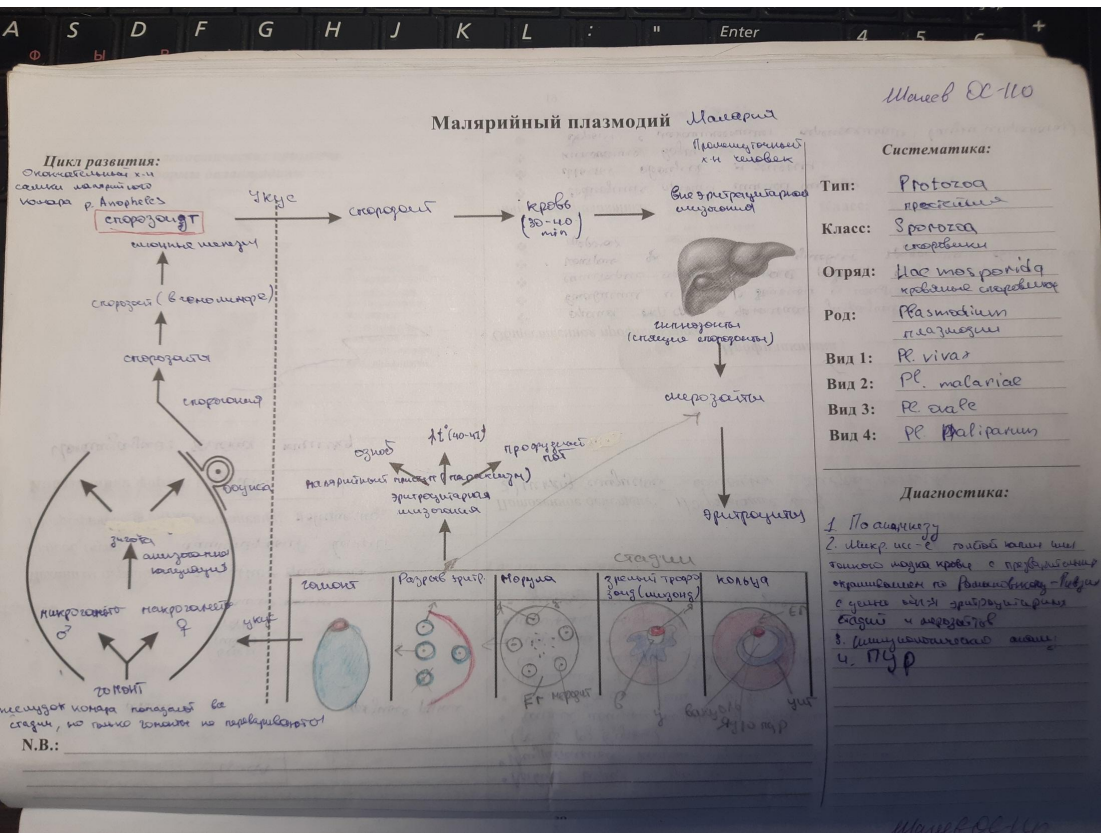 A S D F G H J K L : " Enter 4 5 6 +
Ф Ы В
ОС-110
Малярийный плазмодий Малярия
Цикл развития:
Окончательный х-н
самки малярийного
комара р. Anopheles
спорозоидт
слюнные железы
спорозоит (в гемолимфе)
спорозоиты
спорогония
ооциста
зигота
микрогамето ♂
макрогамето ♀
гомонт
желудок комара попадают все
стадии, но только гомонты не перевариваются!
укус
спорозоит
кровь
(30-40
min)
Промежуточный
х-н человек
внеэритроцитарная
шизогония
гипнозоиты
(спящие спорозоиты)
мерозоиты
эритроциты
озноб
t° (40-41)
профузный
пот
малярийный приступ (пароксизм)
эритроцитарная
шизогония
укус
стадии
гомонт
Разрыв эритр.
Морула
зрелый трофо
зоид (шизонд)
кольца
Er мерозоит
Er
вакуоль
ядро
цит
Систематика:
Тип: Protozoa
простейшие
Класс: Sporozoa
споровики
Отряд: Haemosporida
кровяные споровики
Род: Plasmodium
плазмодии
Вид 1: Pl. vivax
Вид 2: Pl. malariae
Вид 3: Pl. ovale
Вид 4: Pl. faliparum
Диагностика:
1. По анамнезу
2. Микр. исс-е толстой капли или
тонкого мазка крови с
окрашиванием по Романовскому-
с целью эритроцитарных
стадий и мерозоитов
3. Иммунологическ
4. ПЦР
N.B.: